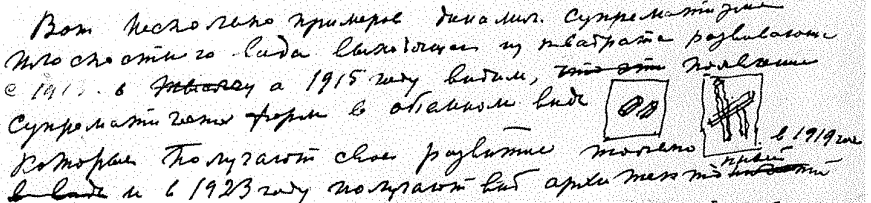 Вот несколько примеров динамич. Супрематизма
плоскостного вида выходящ из квадрата развивающ
с 191 в а 1915 году видим, что эти появление
Супрематических форм в обаимном виде
которые получают свое развитие только в 1919 году
в виде и в 1923 году получают вид архитектон